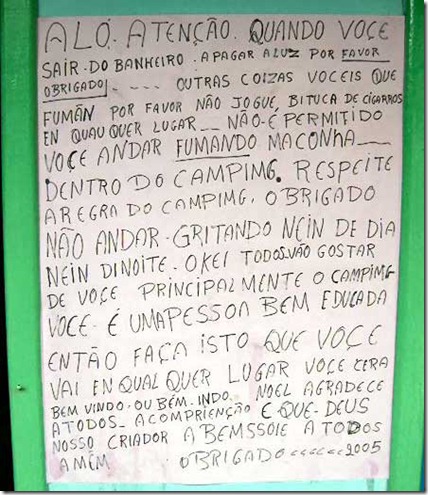 ALÓ. ATENÇÃO. QUANDO VOCE
SAIR-DO BANHEIRO. APAGAR A LUZ POR FAVOR
OBRIGADO!. - - - - OUTRAS COIZAS VOCEIS QUE
FUMÃN POR FAVOR NÃO JOGUE, BITUCA DE CIGARROS
EN QUAU QUER LUGAR __ NÃO-É PERMITIDO
VOCE ANDAR FUMANDO MACONHA ___
DENTRO DO CAMPING. RESPEITE
A REGRA DO CAMPING. OBRIGADO
NÃO ANDAR-GRITANDO NEIN DE DIA
NEIN DINOITE. OKEI TODOS.VÃO GOSTAR
DE VOCE PRINCIPALMENTE O CAMPIMG
VOCE-É UMAPESSOA BEM EDUCADA
ENTÃO FAÇA ISTO QUE VOCE
VAI EN QUAL QUER LUGAR VOCE CERA
BEM VINDO.OU BEM.INDO. NOEL AGRADECE
A TODOS_ A COMPRIENÇÃO E QUE-DEUS
NOSSO CRIADOR A BEMSSOIE A TODOS
AMÉM OBRIGADO<<<<<<2005